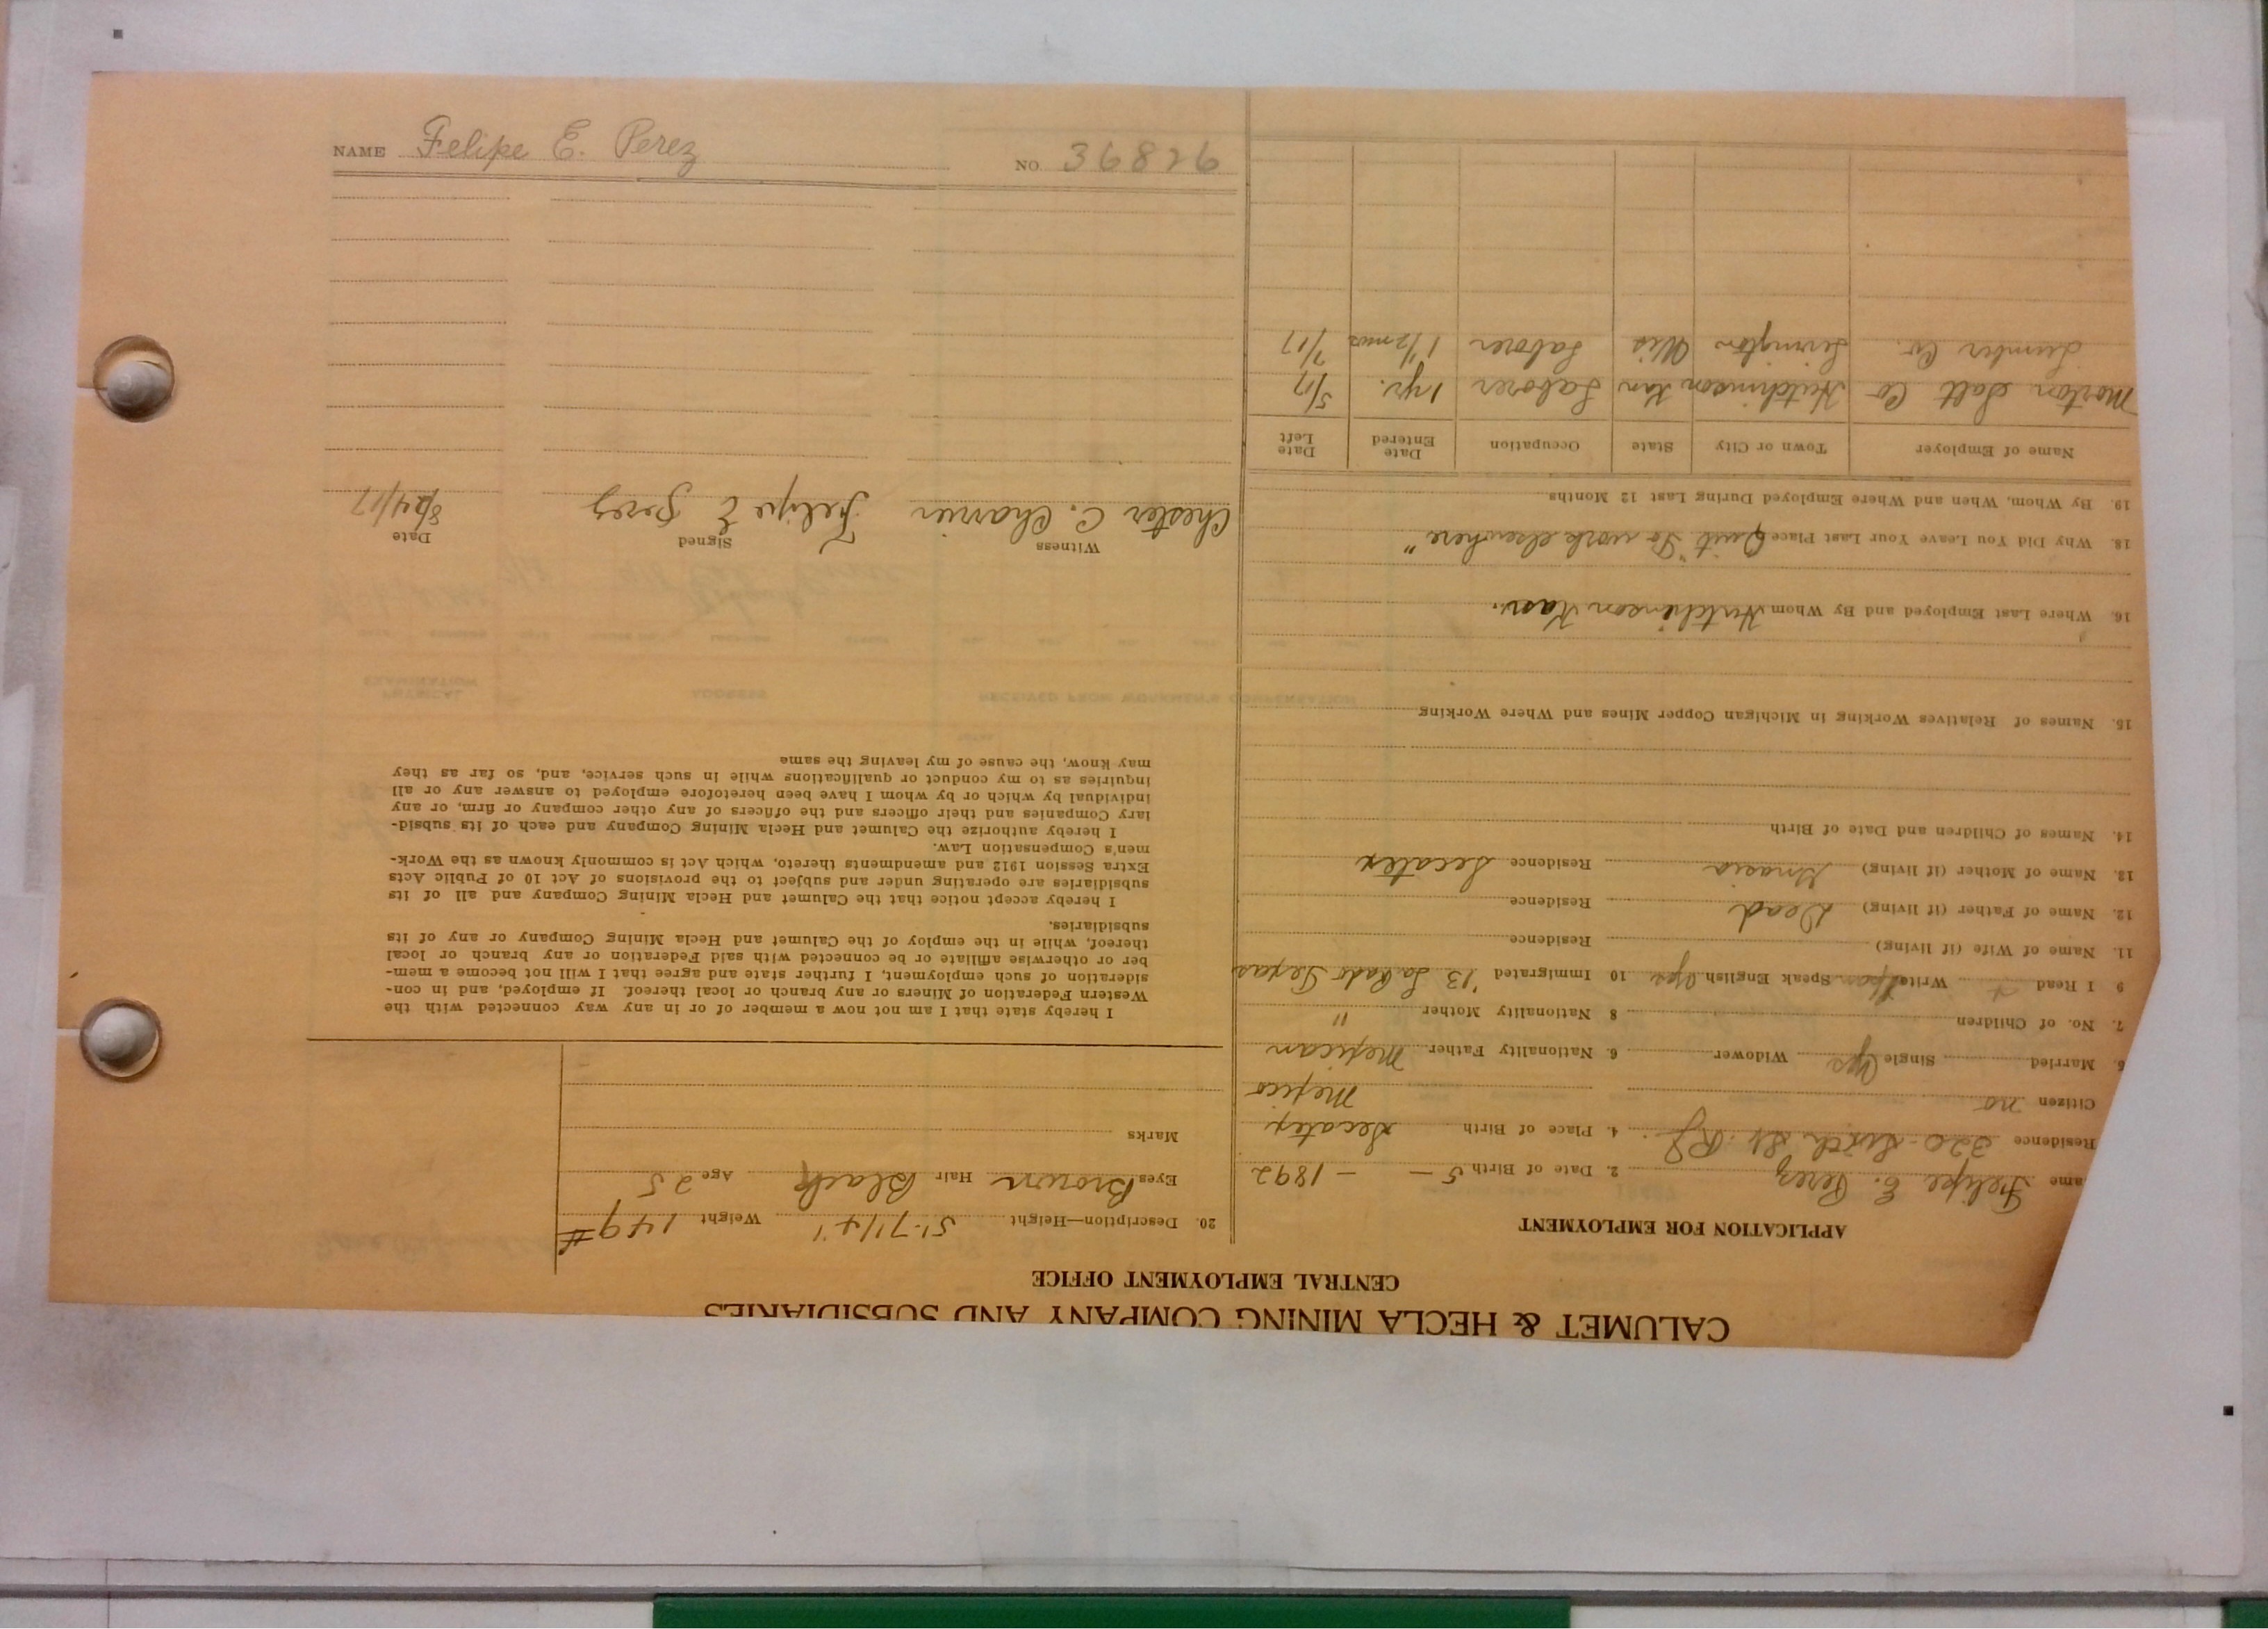 NAME Felipe E. Perez NO. 36826
CALUMET & HECLA MINING COMPANY AND SUBSIDIARIES
CENTRAL EMPLOYMENT OFFICE
APPLICATION FOR EMPLOYMENT
ame Felipe E. Perez 2. Date of Birth 5 — — 1892
Residence 320 St. 4. Place of Birth Secatex
Citizen no Mexico
5. Married Single Yes Widower 6. Nationality Father Mexican
7. No. of Children 8 Nationality Mother "
9 I Read Write Speak English Yes 10 Immigrated '13 Texas
11. Name of Wife (if living) Residence
12. Name of Father (if living) Dead Residence
13. Name of Mother (if living) Residence Secatex
14. Names of Children and Date of Birth
15. Names of Relatives Working in Michigan Copper Mines and Where Working
16. Where Last Employed and By Whom Hutchinson Kas.
18. Why Did You Leave Your Last Place Quit "To work elsewhere"
19. By Whom, When and Where Employed During Last 12 Months
Name of Employer Town or City State Occupation Date Entered Date Left
Morton Salt Co Hutchinson Kan Laborer 1 yr. 5/17
Lumber Co. Livington Wis Laborer 1 1/2 mos 7/17
20. Description—Height 5'-7 1/4" Weight 149#
Eyes Brown Hair Black Age 25
Marks
I hereby state that I am not now a member of or in any way connected with the
Western Federation of Miners or any branch or local thereof. If employed, and in con-
sideration of such employment, I further state and agree that I will not become a mem-
ber or otherwise affiliate or be connected with said Federation or any branch or local
thereof, while in the employ of the Calumet and Hecla Mining Company or any of its
subsidiaries.
I hereby accept notice that the Calumet and Hecla Mining Company and all of its
subsidiaries are operating under and subject to the provisions of Act 10 of Public Acts
Extra Session 1912 and amendments thereto, which Act is commonly known as the Work-
men's Compensation Law.
I hereby authorize the Calumet and Hecla Mining Company and each of its subsid-
iary Companies and their officers and the officers of any other company or firm, or any
individual by which or by whom I have been heretofore employed to answer any or all
inquiries as to my conduct or qualifications while in such service, and, so far as they
may know, the cause of my leaving the same
Witness Signed Date
Chester C. Charrier Felipe E Perez 8/24/17